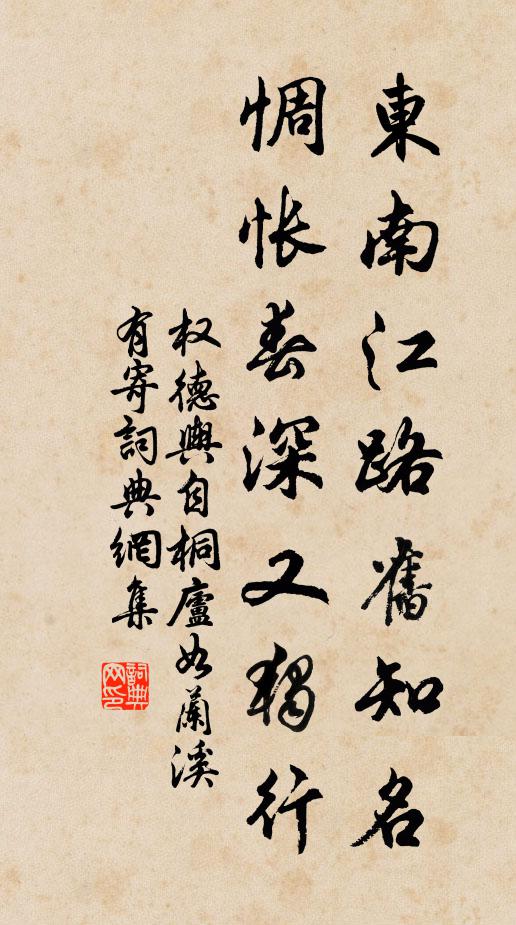 東南江路舊知名
惆悵春深又獨行
权德輿自桐廬如蘭溪
有寄詞典網集
詞典网印